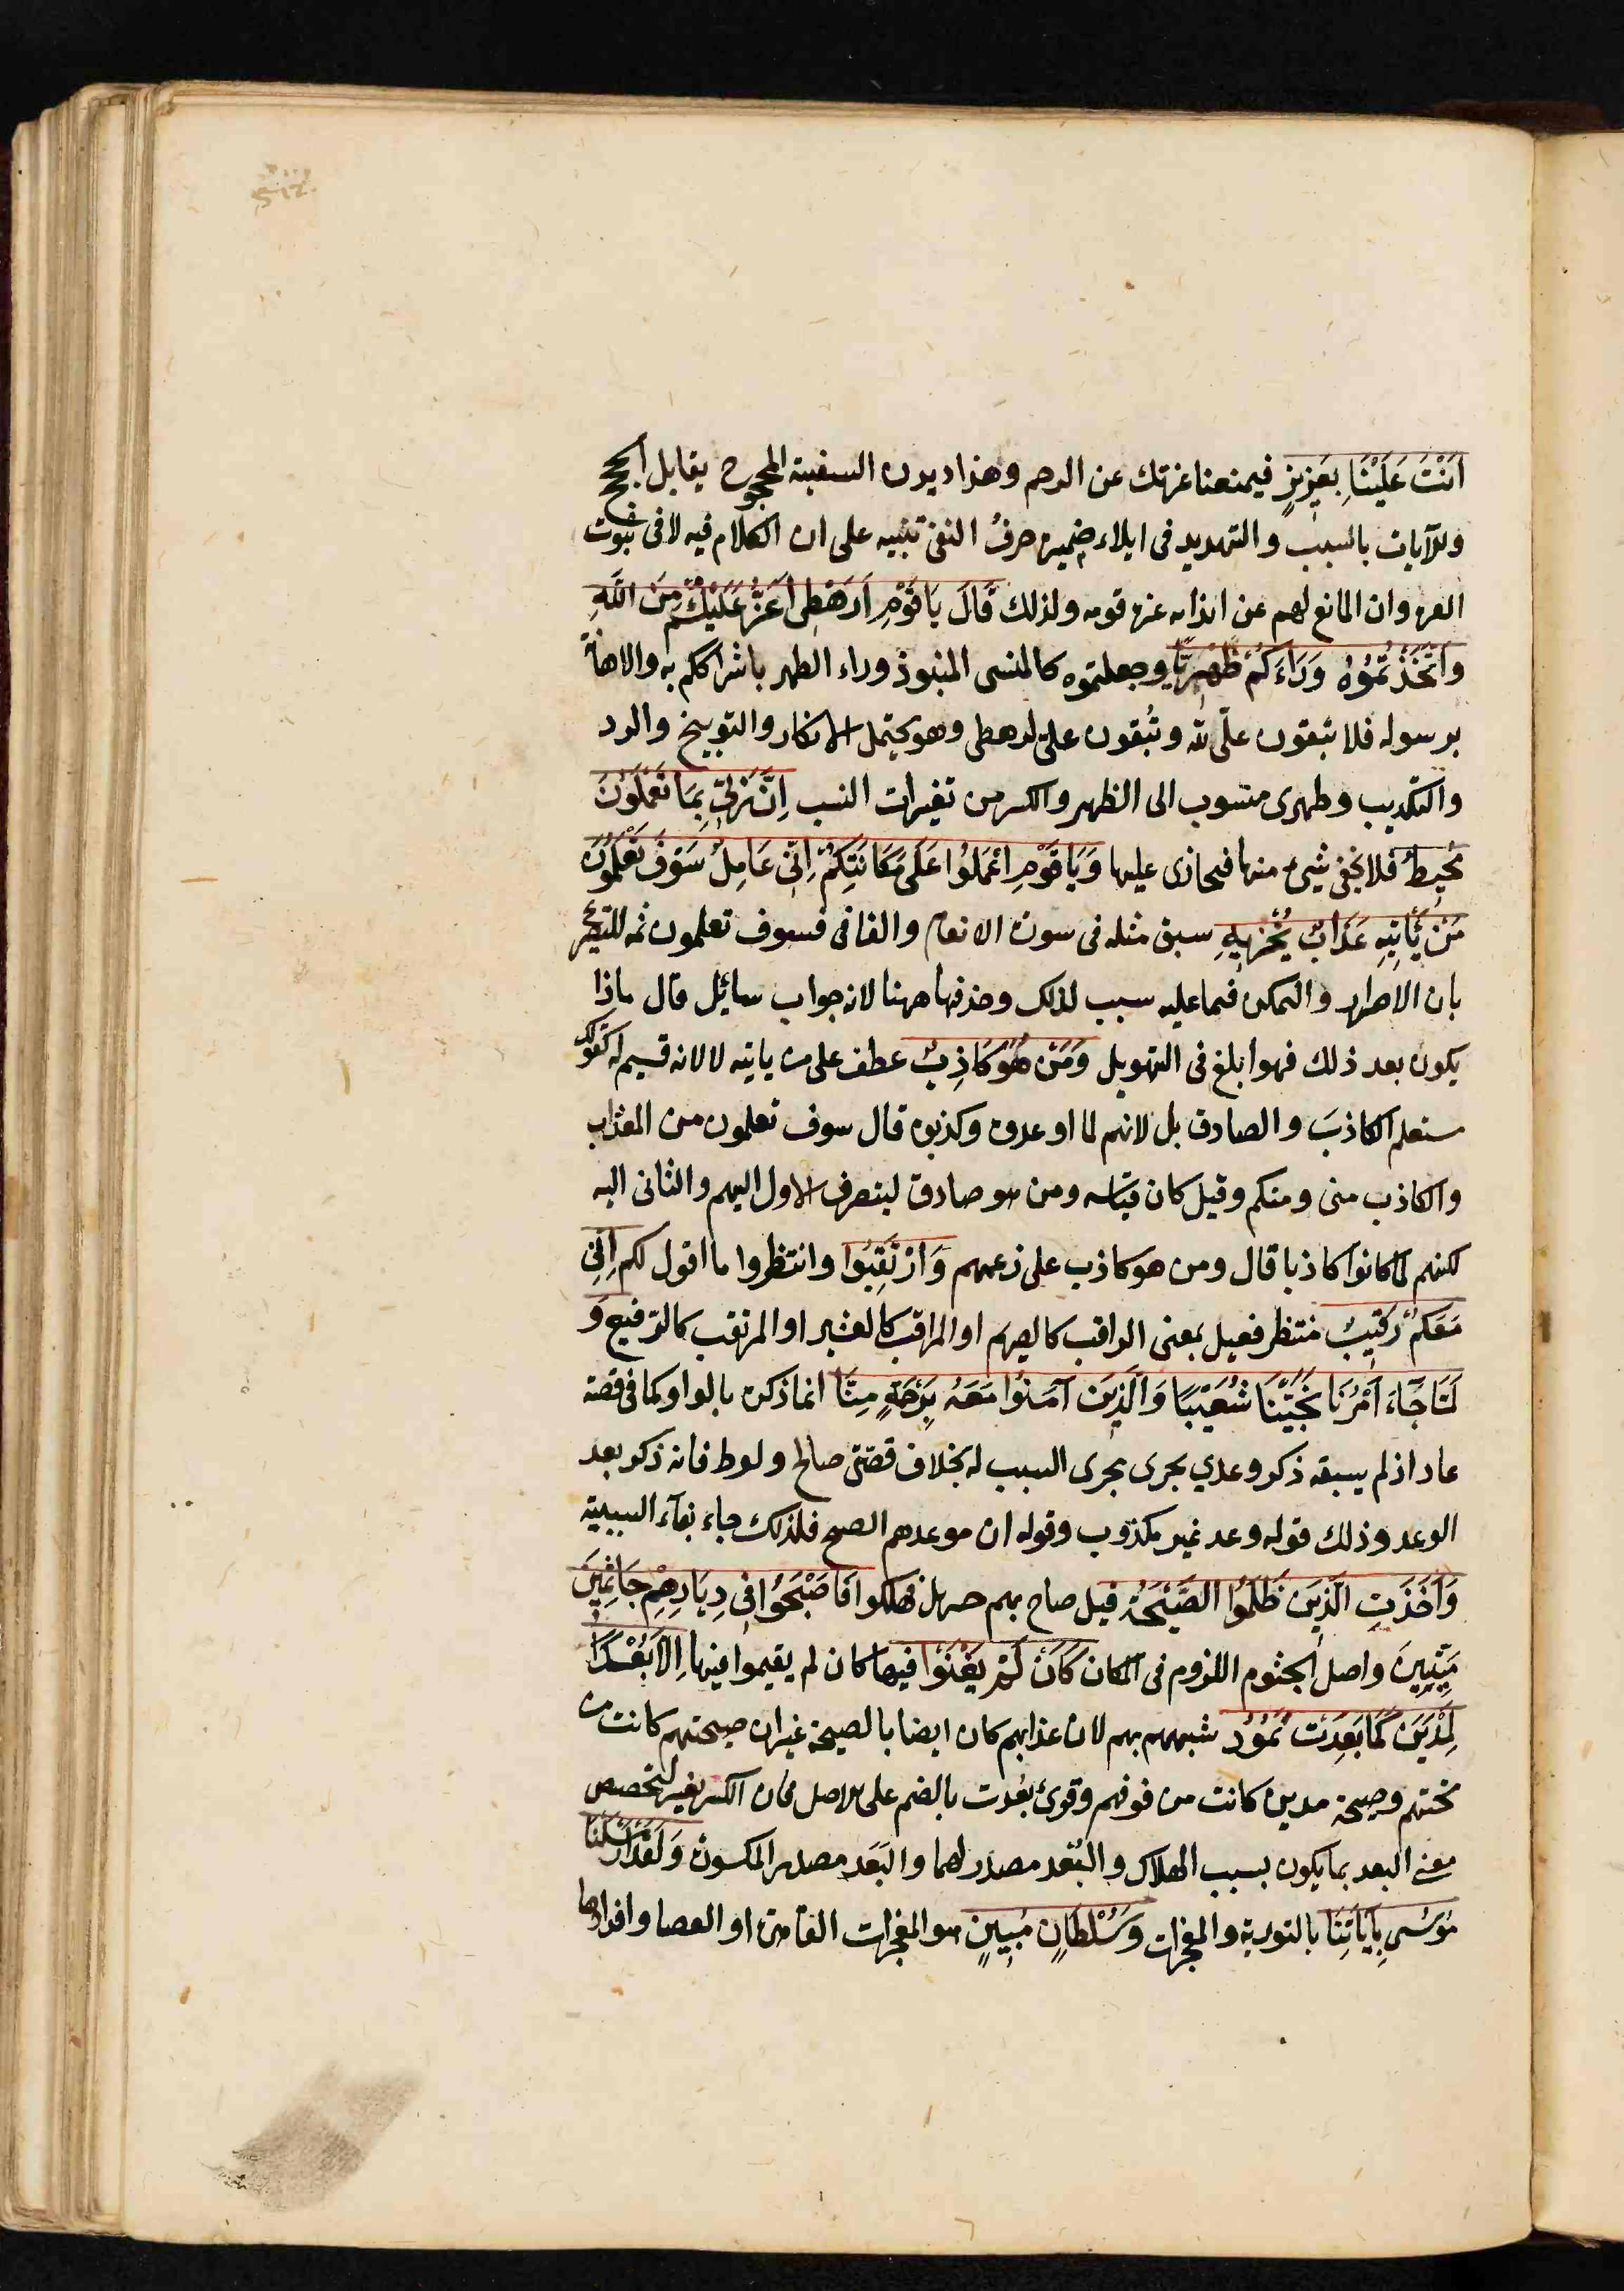 اَنْتَ عَلَيْنَا بِعَزِيزٍ فيمنعنا عزتك عن الرجم وهذا ديدن السفيه المحجوج يقابل الحجج
والآيات بالسبب والتهديد فى ايلاء ضميره حرفُ النفى تنبيه على ان الكلام فيه لا فى ثبوت
العزه وان المانع لهم عن ايذائه عزه قومه ولذلك قَالَ يَا قَوْمِ اَرَهْطِى اَعَزُّ عَلَيْكُمْ مِنَ اللّٰهِ
وَاتَّخَذْتُمُوُهُ وَرَاءَكُمْ ظِهْرِيًّا وجعلتموه كالمنسى المنبوذ وراء الظهر باشراككم به والاهانة
برسوله فلا تبقون علىّ لله وتُبقون علىّ لرهطى وهو يحتمل الانكار والتوبيخ والرد
والتكذيب وظهرى منسوب الى الظهر والكسر من تغيرات النسب اِنَّ رَبِّى بِمَا تَعْمَلُونَ
مُحِيطٌ فلا يخفى شئ منها فيجازى عليها وَيَا قَوْمِ اعْمَلُوا عَلَى مَكَانَتِكُمْ اِنِّى عَامِلٌ سَوْفَ تَعْلَمُونَ
مَنْ يَأْتِيهِ عَذَابٌ يُخْزِيهِ سبق مثله فى سورة الانعام والفا فى فسوف تعلمون ثمه للتصريح
بان الاصرار والتمكن فيما عليه سبب لذلك وحذفها ههنا لانه جواب سائل قال ماذا
يكون بعد ذلك فهو ابلغ فى التهويل وَمَنْ هُوَ كَاذِبٌ عطف على من ياتيه لا لانه قسيم له كقولك
ستعلم الكاذبَ والصادق بل لانهم لما اوعدوه وكذبوه قال سوف تعلمون من المعذب
والكاذب منى ومنكم وقيل كان قياسه ومن هو صادق لينصرف الاول اليهم والثانى اليه
لكنهم لما كانوا كاذبا قال ومن هو كاذب على زعمهم وَارْتَقِبُوا وانتظروا ما اقول لكم اِنِّى
مَعَكُمْ رَقِيبٌ منتظر فعيل بمعنى الراقب كالصريم او المراقب كالعشير او المرتقب كالرفيع وَ
لَمَّا جَآءَ اَمْرُنَا نَجَّيْنَا شُعَيْبًا وَالَّذِينَ آمَنُوا مَعَهُ بِرَحْمَةٍ مِنَّا انما ذكره بالواو كما فى قصة
عاد اذ لم يسبقه ذكر وعدي يجرى مجرى السبب له بخلاف قصتى صالح ولوط فانه ذكر بعد
الوعد وذلك قوله وعد غير مكذوب وقوله ان موعدهم الصبح فلذلك جاء بفآء السببية
وَاَخَذَتِ الَّذِينَ ظَلَمُوا الصَّيْحَةُ قيل صاح بهم جبريل فهلكوا فَاَصْبَحُوا فِى دِيَارِهِمْ جَاثِمِينَ
مَيِّتِينَ واصل الجثوم اللزوم فى المكان كَاَنْ لَمْ يَغْنَوْا فيها كان لم يقيموا فيها اِلَّا بُعْدًا
لِمَدْيَنَ كَمَا بَعِدَتْ ثَمُوُد شبههم بهم لان عذابهم كان ايضا بالصيحة غير ان صيحتهم كانت من
تحتهم وصيحة مدين كانت من فوقهم وقرئ بعُدت بالضم على الاصل فان الكسر تغيير لتخصيص
معنى البعد بما يكون بسبب الهلاك والبُعْد مصدر لهما والبَعَد مصدر المكسورة وَلَقَدْ اَرْسَلْنَا
مُوسَى بِاَيَاتِنَا بالتورية والمعجزات وَسُلْطَانٍ مُبِينٍ هو المعجزات القاهرة او العصا وافرادها